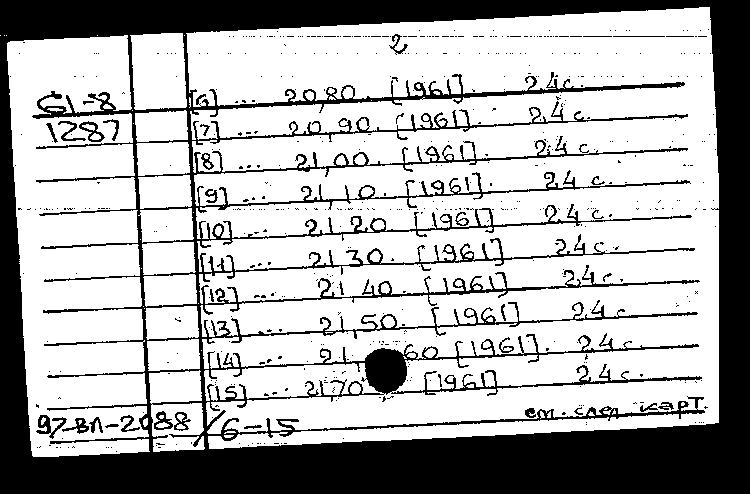 2
61-8 [6] ... 20,80. [1961]. 24 с.
1287 [7] ... 20,90. [1961]. 24 с.
[8] ... 21,00. [1961]. 24 с.
[9] ... 21,10. [1961]. 24 с.
[10] ... 21,20. [1961] 24 с.
[11] ... 21,30. [1961] 24 с.
[12] ... 21,40. [1961] 24 с.
[13] ... 21,50. [1961] 24 с.
[14] ... 21,60 [1961]. 24 с.
[15] ... 21,70 [1961] 24 с.
см. след. карт.
97-ВЛ-2088/6-15